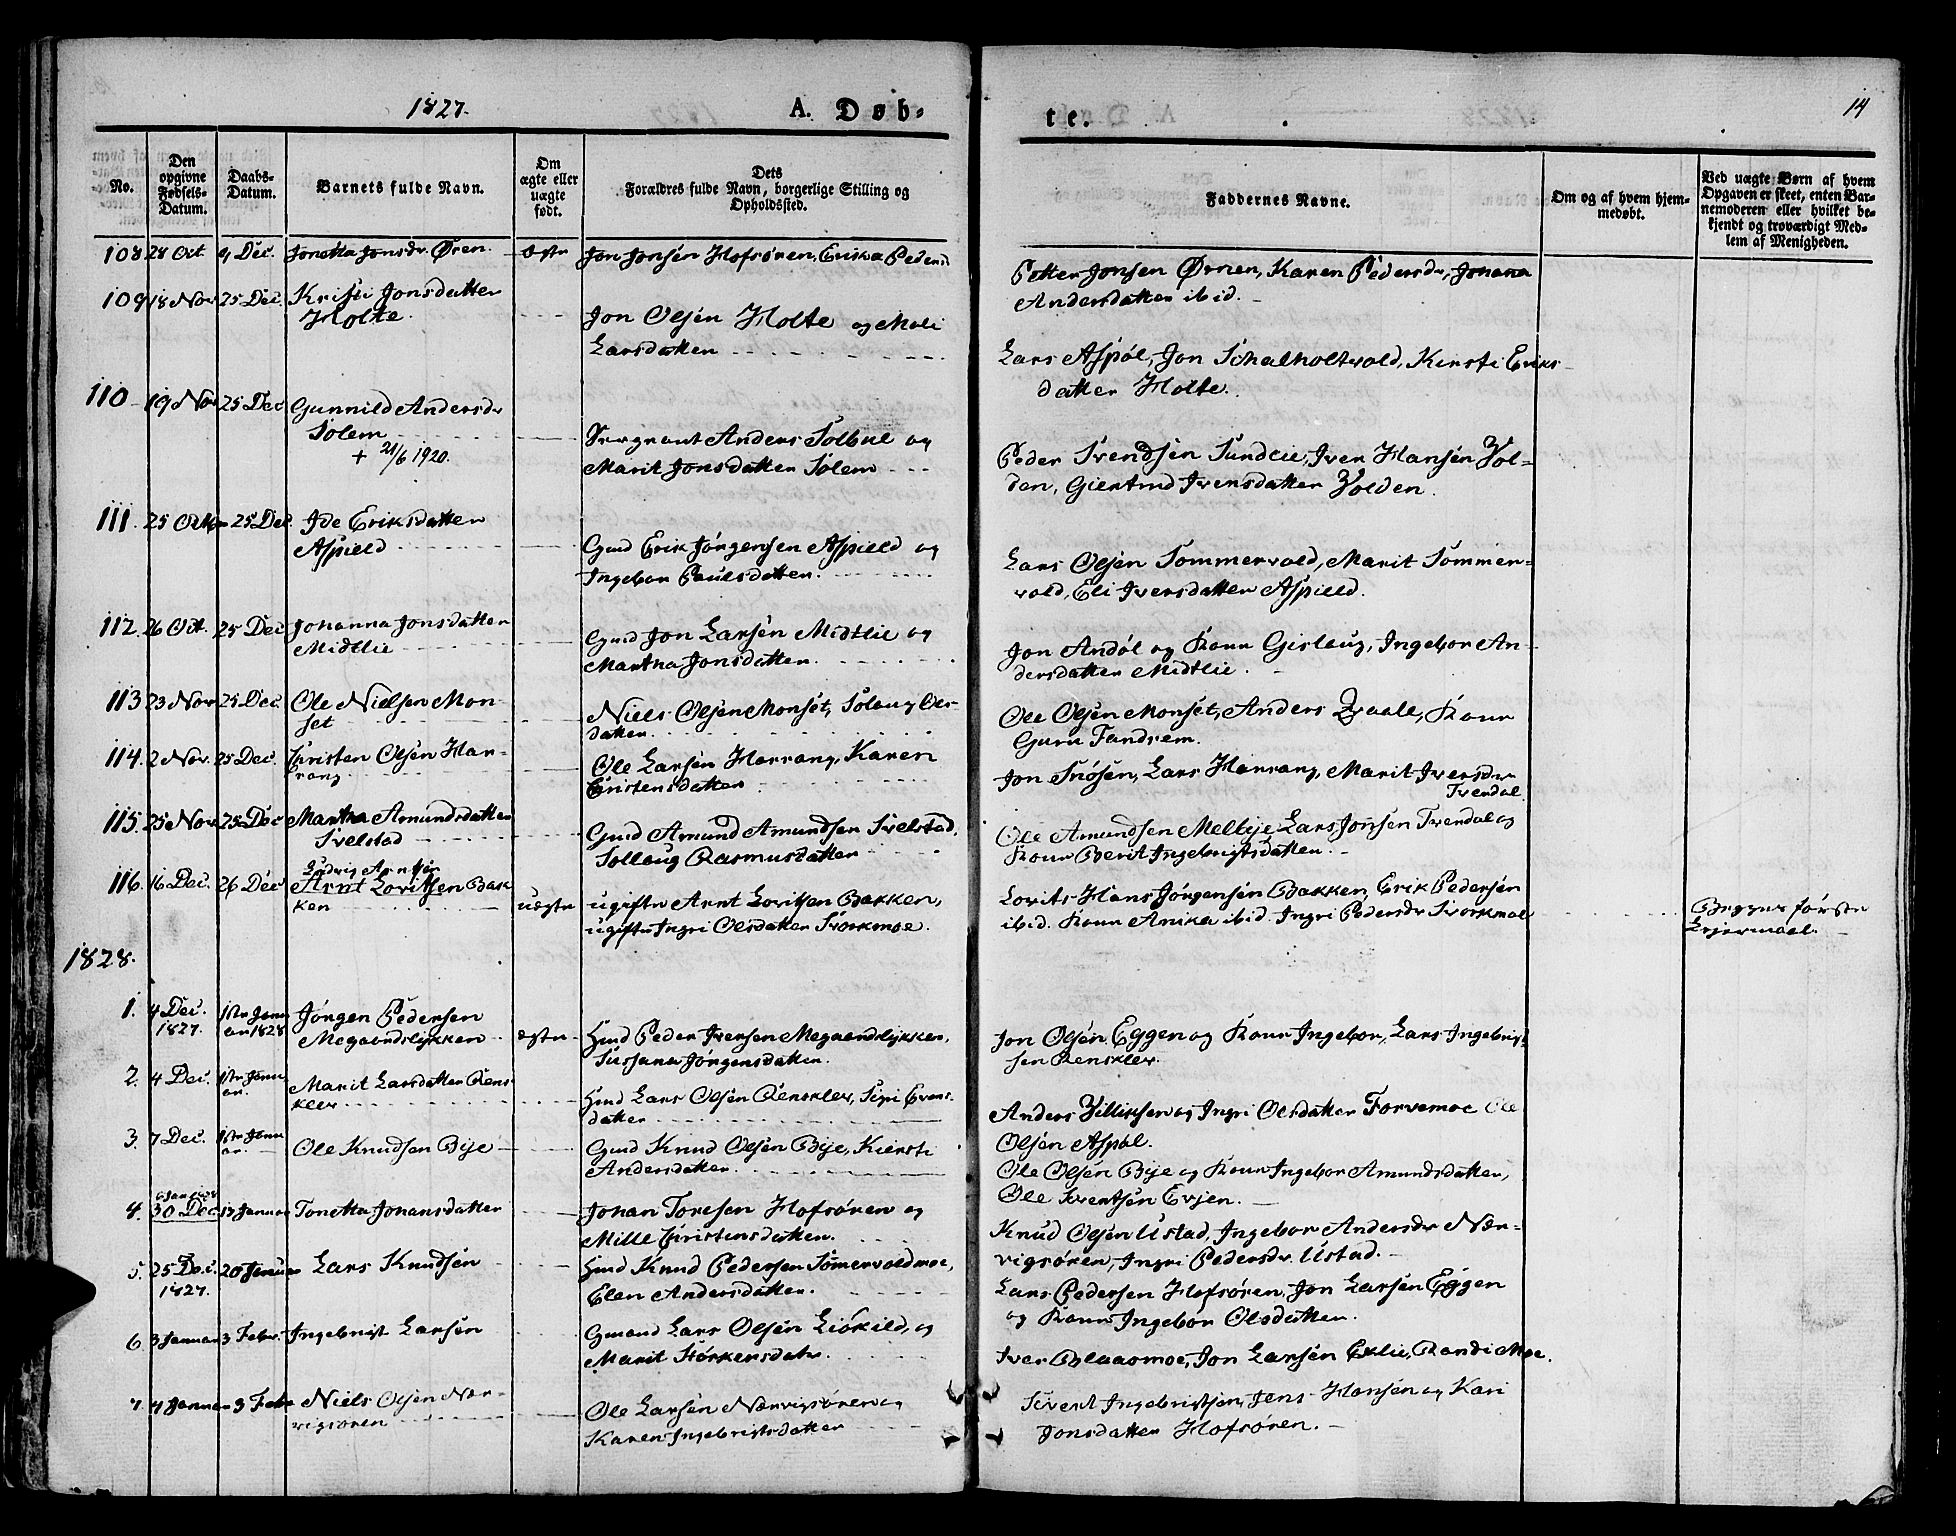 1827.
A. Døb-
te.
14
No.
Den opgivne Fødsels-Datum.
Daabs-Datum.
Barnets fulde Navn.
Om ægte eller uægte født.
Dets Forældres fulde Navn, borgerlige Stilling og Opholdssted.
Faddernes Navne.
Om og af hvem hjemmedøbt.
Ved uægte Børn af hvem Opgaven er skeet, enten Barnemoderen eller hvilket bekjendt og troværdigt Medlem af Menigheden.
108 28 Oct 9 Dec. Jonetta Jonsdr Øren. Jon Jonsen Hofsøren, Erika Pedersd
Petter Jonsen Ørnen, Karen Pedersdr, Johana
Andersdatter ibid.
109 18 Nov 25 Dec. Kristi Jonsdatter
Holte. Jon Olsen Holte og Mali
Larsdatter
Lars Aspøl, Jon Schalholtvold, Kersti Eriks
datter Holte.
110 19 Nov 25 Dec Gunnild Andersdr
Solem
+ 21/6 1920.
Sergeant Anders Solbue og
Marit Jonsdatter Solem
Peder Svendsen Sundlie, Iver Hansen Vol-
den, Giertrud Iversdatter Volden.
111. 25 Octbr 25 Dec. Ide Eriksdatter
Aspield Gmd Erik Jørgensen Aspield og
Ingebor Paulsdatter.
Lars Olsen Sommervold, Marit Sommer-
vold, Eli Iversdatter Aspield.
112. 26 Oct. 25 Dec Johanna Jonsdatter
Midtlie Gmd Jon Larsen Midtlie og
Martha Jonsdatter.
Jon Andøl og Kone Gislaug, Ingebor An-
dersdatter Midtlie.
113 23 Nov 25 Dec. Ole Nielsen Mon-
set Niels Olsen Monset, Solaug Ols-
datter.
Ole Olsen Monset, Anders Qvaale, Kone
Guru Fandrem.
114. 2 Nov. 25 Dec. Christen Olsen Har-
rang Ole Larsen Harrang, Karen
Christensdatter
Jon Snøsen, Lars Harrang, Marit Iversdr
Svendal.
115. 25 Nov 25 Dec Martha Amundsdatter
Svelstad Gmd Amund Amundsen Svelstad,
Sollaug Rasmusdatter
Ole Amundsen Melbye, Lars Jonsen Svendal og
Kone Berit Ingebrigtsdatter.
Ludvig Arntsen
116. 16 Dec. 26 Dec Arnt Lovitsen Bak
ken uægte ugifte Arnt Lovitsen Bakken,
ugifte Ingri Olsdatter Svorkmoe.
Lovits Hans Jørgensen Bakken, Erik Pedersen
ibid. Kone Anika ibid. Ingri Pedersdr Svorkmoe
Begges første
Leiermaal.
1828.
1. 4 Dec.
1827. 1ste Janu
ar 1828 Jørgen Pedersen
Megaardslykken ægte Hmd Peder Iversen Megaardslykken,
Sussana Jørgensdatter.
Jon Olsen Eggen og Kone Ingebor, Lars Ingebrigt
sen Rensklev.
2. 4 Dec. 1ste Janu
ar. Marit Larsdatter Rens
klev Hmd Lars Olsen Rensklev, Siri Evens-
datter
Anders Villiksen og Ingri Olsdatter Forvemoe Ole
Olsen Aspøl.
3. 7 Dec. 1ste Janu
ar. Ole Knudsen Bye Gmd Knud Olsen Bye, Kiersti
Andersdatter.
Ole Olsen Bye og Kone Ingebor Amundsdatter,
Ole Sventsen Evjen.
4. 30 Dec 13 Januar Tonetta Johansdatter Johan Toresen Hofsøren og
Mille Christensdatter.
Knud Olsen Ustad, Ingebor Andersdr Nær-
vigsøren, Ingri Pedersdr. Ustad.
5. 25 Dec.
1827. 20 Januar Lars Knudsen Hmd Knud Pedersen Somervoldmoe,
Elen Andersdatter.
Lars Pedersen Hofsøren, Jon Larsen Eggen
og Kone Ingebor Olsdatter.
6 3 Januar 3 Febr. Ingebrigt Larsen Gmand Lars Olsen Liøkild, og
Marit Størkersdatr
Iver Blaasmoe, Jon Larsen Exlie, Randi Moe.
7. 4 Januar 3 Febr Niels Olsen Nær-
vigsøren Ole Larsen Nærvigsøren og
Karen Ingebrigtsdatter
Sivert Ingebrigtsen, Jens Hansen og Kari
Jonsdatter Hofsøren.